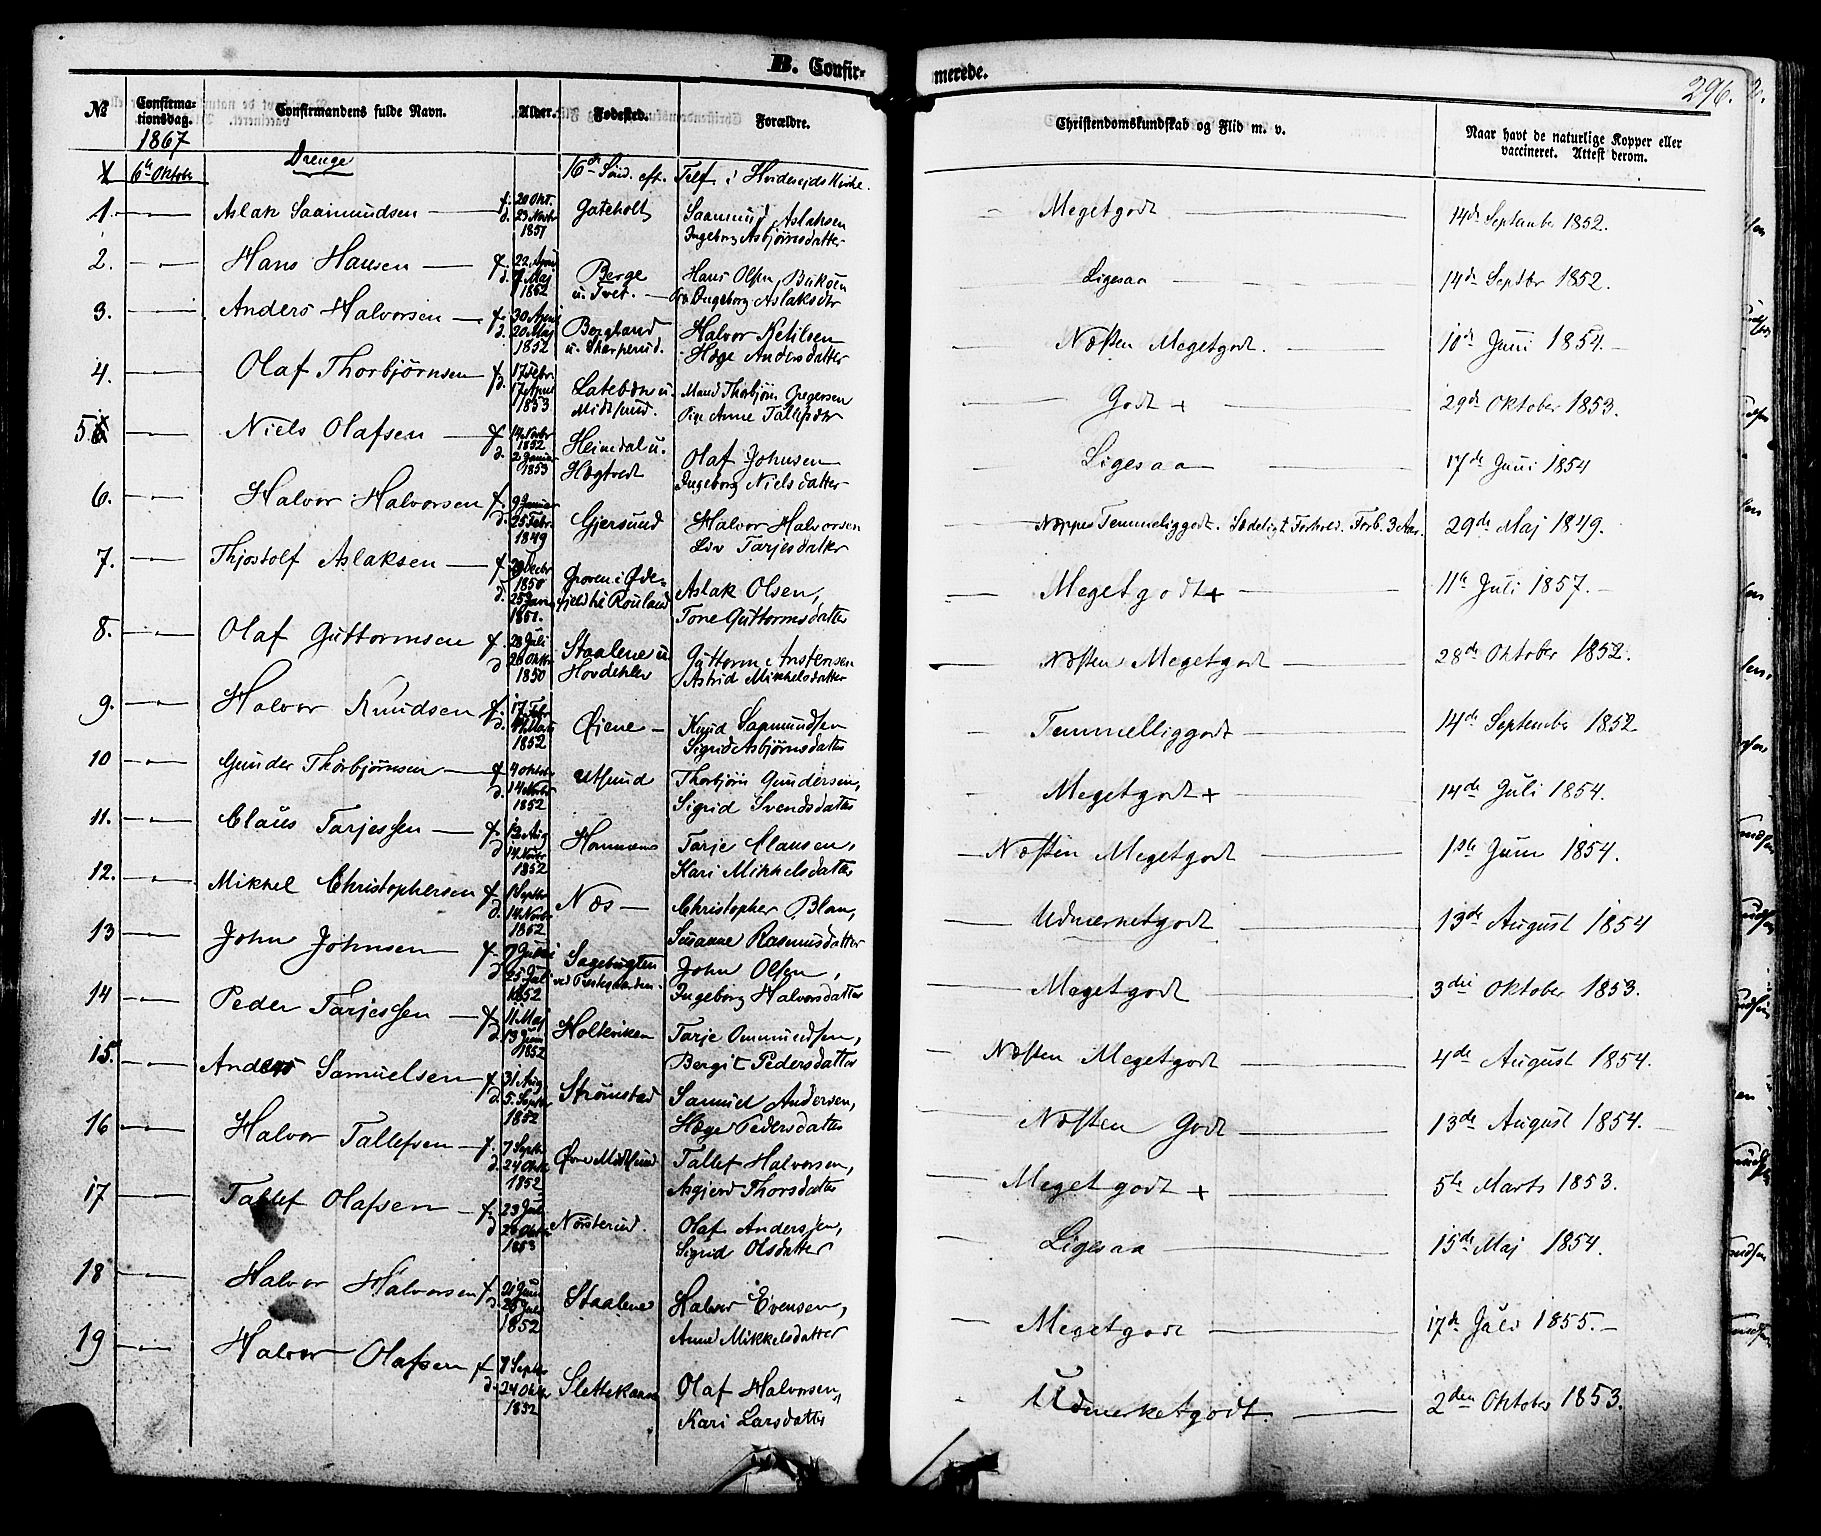 B. Confirmerede.
296.
№ Confirmationsdag. Confirmandens fulde Navn. Alder. Fødested. Forældre. Christendomskundskab og Flid m. v. Naar havt de naturlige Kopper eller vaccineret. Attest derom.
1867
6te Oktobr Drenge 16de Sønd. eft. Tref. i Hvideseids Kirke.
1. Aslak Saamundsen f. 20 Okt. d. 23 Novbr 1851 Gateholt Saamund Aslaksen Ingeborg Asbjørnsdatter Megetgodt 14de September 1852.
2. Hans Hansen f. 22 April d. Maj 1852 Berge u. Tvet. Hans Olsen Ingeborg Aslaksdtr Ligesaa 14de Septbr 1852.
3. Anders Halvorsen f. 30 April d. 20 Maj 1852 Bergland u. Skarperud. Halvor Ketilsen Hæge Andersdatter Næsten Megetgodt. 10de Juni 1854.
4. Olaf Thorbjørnsen f. 17 Febr. d. 17 April 1853 u. Midtsund. Thorbjørn Gregersen Pige Anne Godt + 29de Oktober 1853.
5 Niels Olafsen f. 14 Novbr 1852 d. 2 Januar 1853 Heimdal u. Olaf Johnsen Ingeborg Nielsdatter Ligesaa 17de Juni 1854
6. Halvor Halvorsen f. 9 Januar d. 25 Febr. 1849 Gjersund Halvor Halvorsen Liv Tarjesdatter Neppe Temmeliggodt. Sædeligt Forhold. Forb. 3 Aar. 29de Maj 1849.
7. Thjostolf Aslaksen f. Decbr 1850 d. 25 1851. i Øde- Rouland Aslak Olsen, Tone Guttormsdatter Megetgodt + 11te Juli 1857.
8. Olaf Guttormsen f. 28 Juli d. 20 Oktbr 1850 Staalene u. Guttorm Anstensen Astrid Mikkelsdatter Næsten Megetgodt 28de Oktober 1852.
9. Halvor Knudsen f. 17 d. 1852 Øiene Knud Saamundsen Sigrid Asbjørnsdatter Temmelliggodt 14de September 1852
10 Gunder Thorbjørnsen f. 4 Oktobr d. 14 Novbr 1852 Utsund Thorbjørn Gundersen, Sigrid Svendsdatter Megetgodt + 14de Juli 1854.
11. Claus Tarjessen f. 12 Aug d. 14 Novbr 1852 Tarje Clausen, Kari Mikkelsdatter Næsten Megetgodt 1ste Juni 1854.
12. Mikkel Christophersen f. 1 Septbr d. 14 Novbr 1852 Næs Christopher Blom, Susanne Rasmusdatter Udmerketgodt 13de August 1854
13 John Johnsen f. d. 25 Juli 1852 Sagebugten ved Prestegaarden. John Olsen, Ingeborg Halvorsdatter Megetgodt 3die Oktober 1853.
14 Peder Tarjessen f. 11 Maj d. 13 Juni 1852 Holteviken Tarje Ommundsen, Bergit Pedersdatter Næsten Megetgodt 4de August 1854.
15. Anders Samuelsen f. 31 Aug d. 5 Septbr 1852 Strømstad Samuel Andersen, Hæge Pedersdatter Næsten Godt 13de August 1854.
16 Halvor Tallefsen f. 7 Septbr d. 24 Oktbr 1852 Øvre Midtsund Tallef Halvorsen, Asgjerd Thorsdatter Megetgodt + 5te Marts 1853.
17 Tallef Olafsen f. 23 Juli d. 1853 Nørsterud. Olaf Andersen, Sigrid Olsdatter Ligesaa 15de Maj 1854.
18 Halvor Halvorsen f. 21 Juni d. 25 Juli 1852 Staalene Halvor Evensen, Anne Mikkelsdatter Megetgodt 17de Juli 1855.
19 Halvor Olafsen f. 7 Septbr d. 24 Oktbr 1852 Slettekaasa Olaf Halvorsen, Kari Larsdatter Udmerketgodt. 2den Oktober 1853.